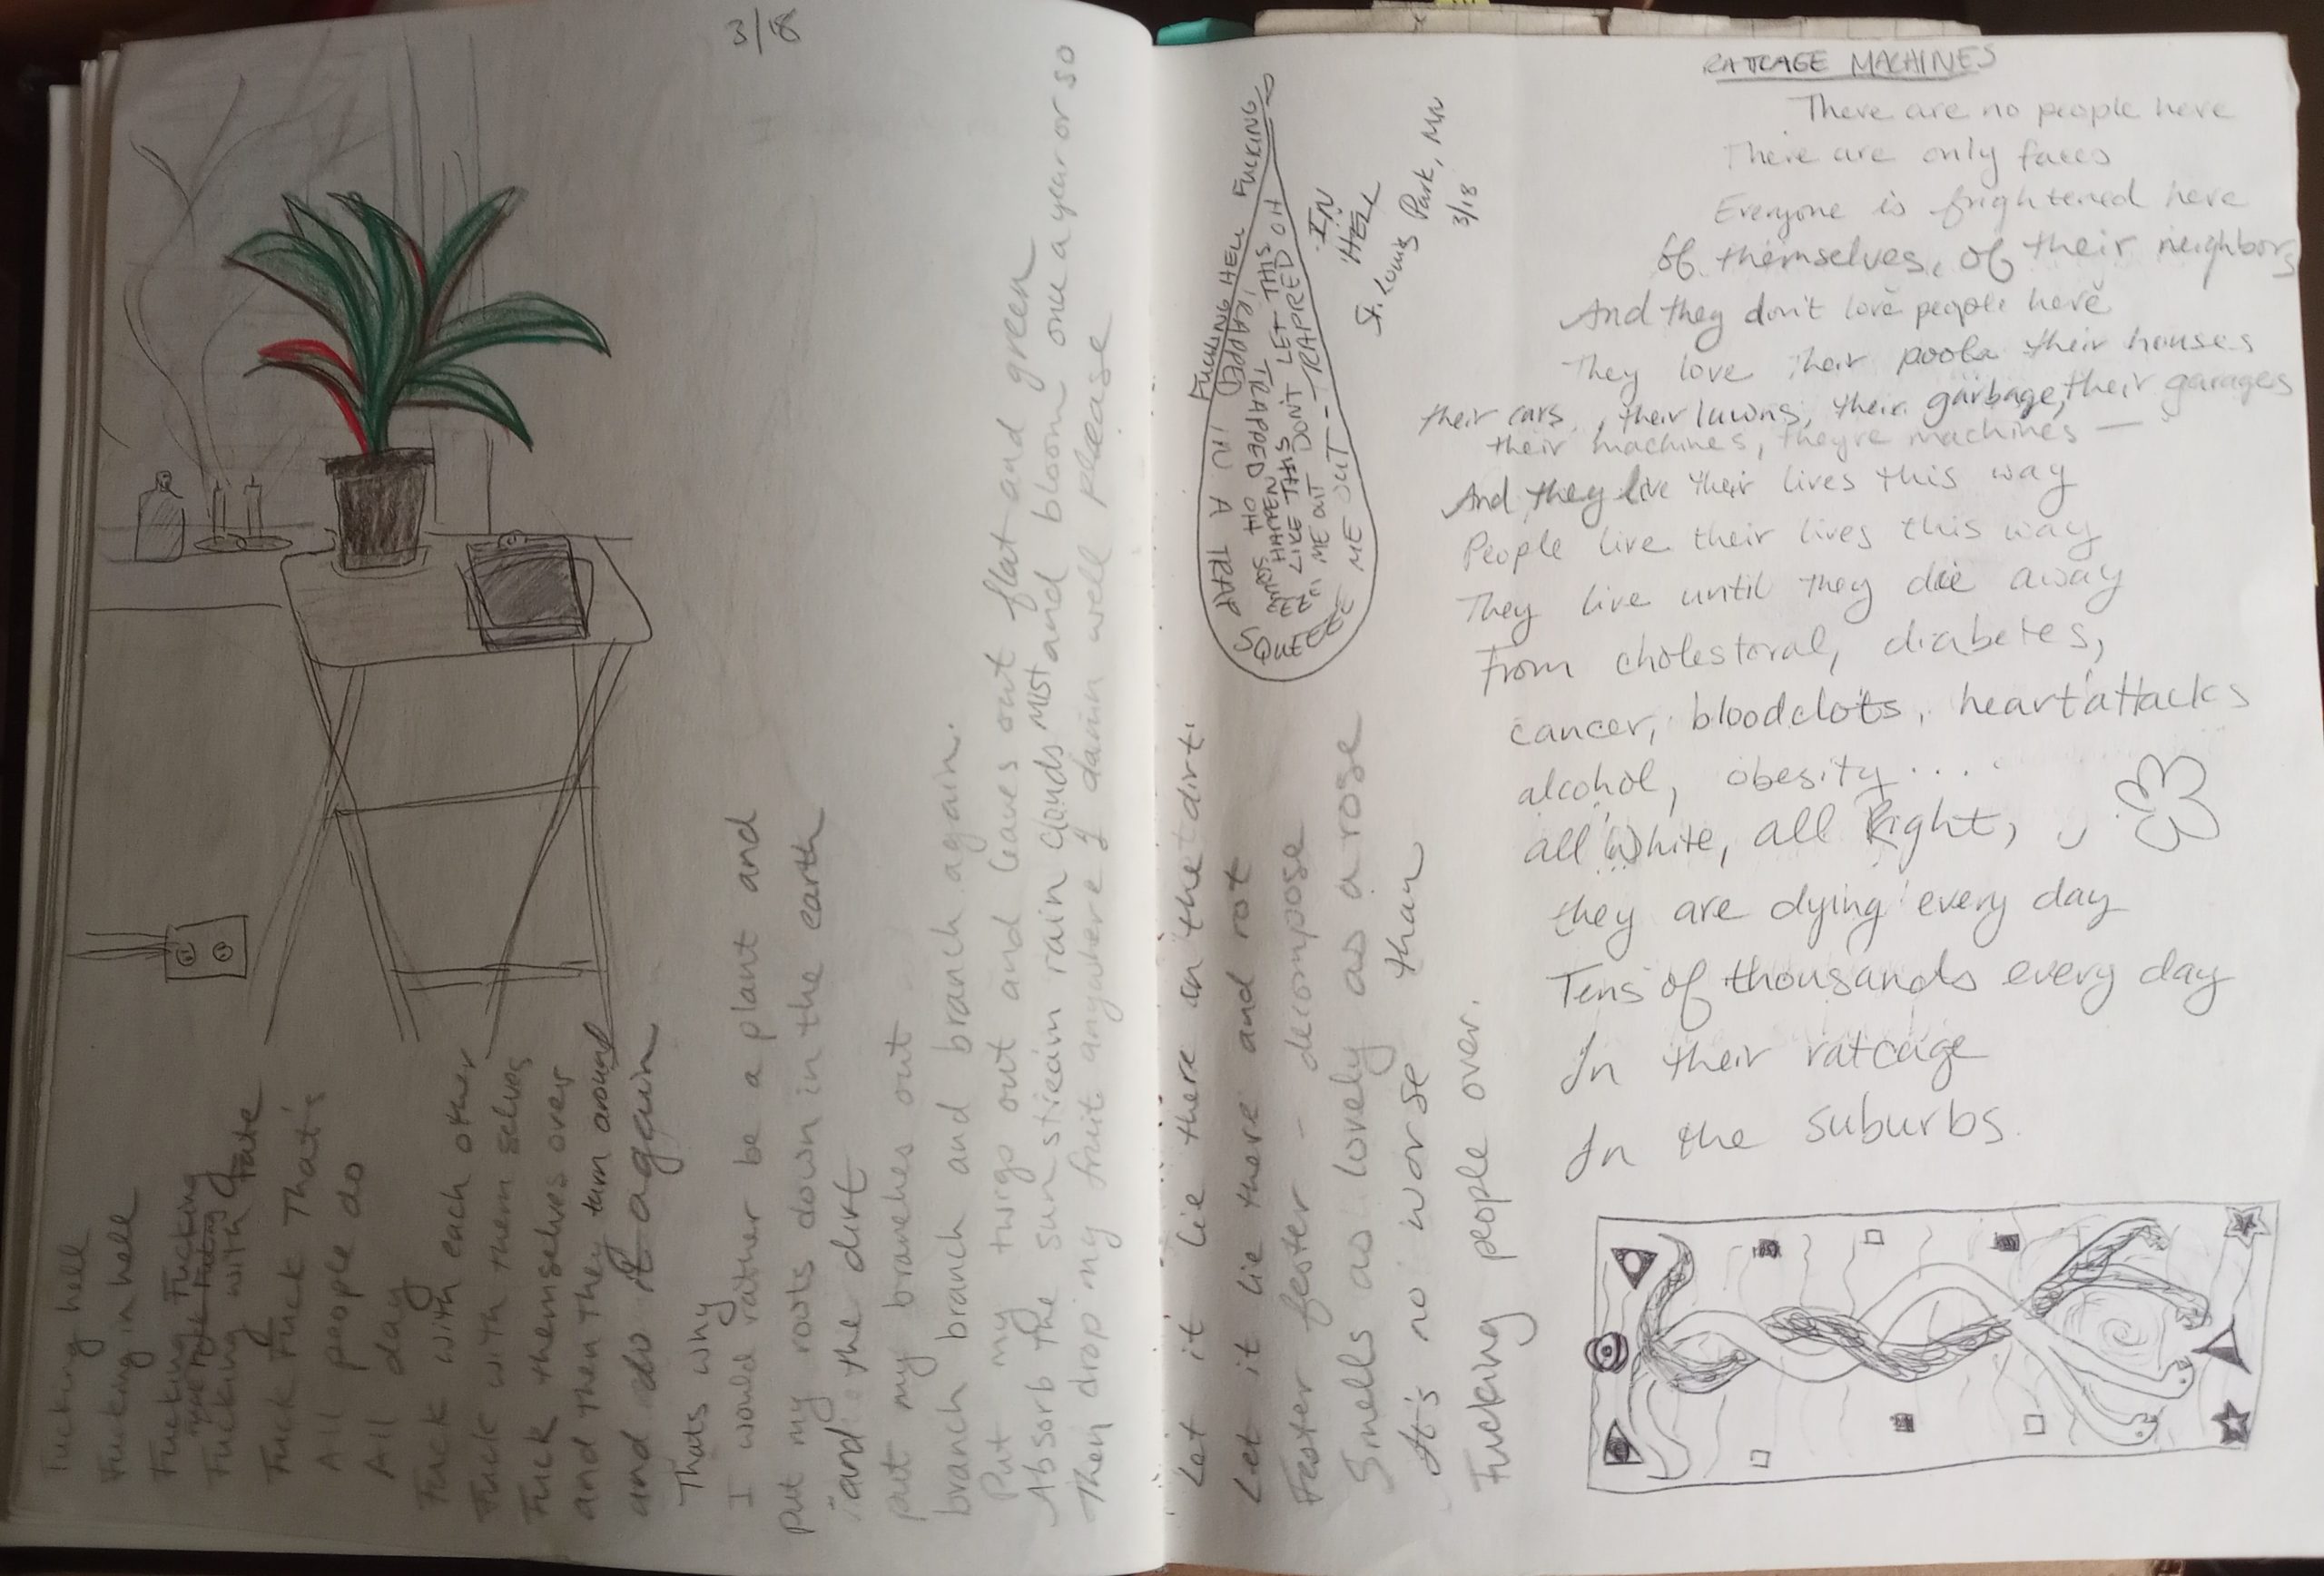 3/18
Fucking hell
Fucking in hell
Fucking Fucking
Fucking with fate
Fuck Fuck That's
All people do
All day
Fuck with each other
Fuck with them selves
Fuck themselves over
and then they turn around
and do it again
Thats why
I would rather be a plant and
put my roots down in the earth
and the dirt
put my branches out
branch branch and branch again.
Put my twigs out and leaves out flat and green
Absorb the sun stream rain clouds mist and bloom once a year or so
Then drop my fruit anywhere I damn well please
Let it lie there in the dirt.
Let it lie there and rot
Fester fester - decompose
Smells as lovely as a rose
It's no worse than
Fucking people over.
FUCKING HELL FUCKING
TRAPPED IN A TRAP
TRAPPED OH
HAPPEN
LIKE THIS
LET THIS
ME OUT DON'T
SQUEEEEEZE ME OUT - TRAPPED OH
IN
HELL
St. Louis Park, MN
3/18
RATCAGE MACHINES
There are no people here
There are only faces
Everyone is frightened here
Of themselves, of their neighbors
And they don't love people here
They love their pools their houses
their cars, their lawns, their garbage, their garages
their machines, theyre machines —
And they live their lives this way
People live their lives this way
They live until they die away
From cholestoral, diabetes,
cancer, bloodclots, heart attacks
alcohol, obesity....
all White, all Right,
they are dying every day
Tens of thousands every day
In their ratcage
In the suburbs.